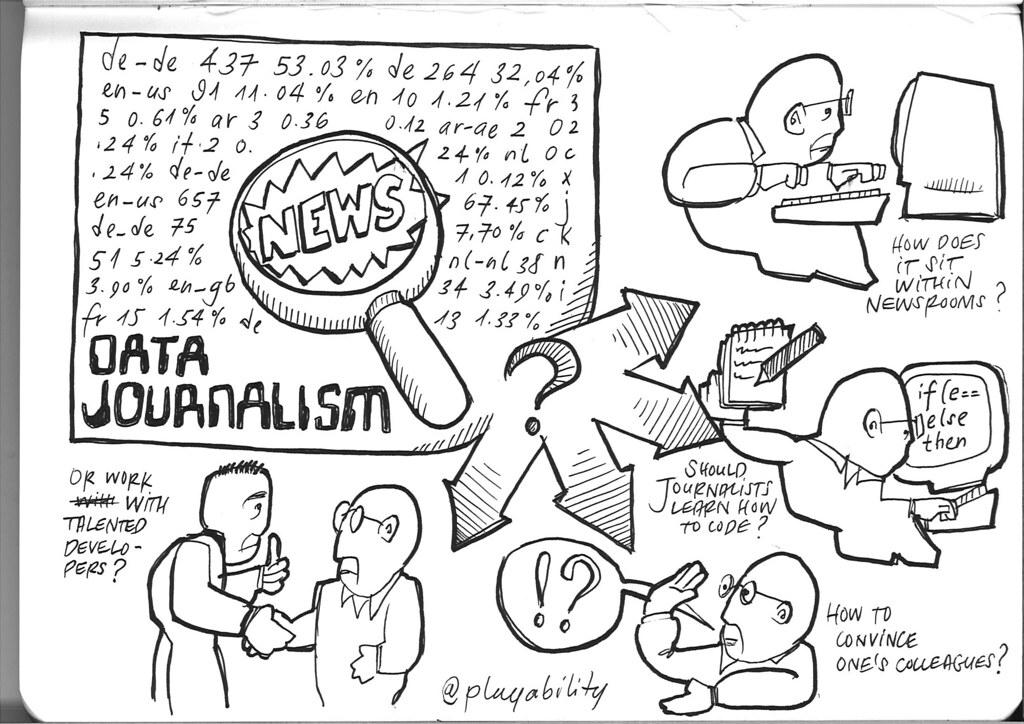 de-de 437 53.03% de 264 32,04%
en-us 91 11.04% en 10 1.21% fr 3
5 0.61% ar 3 0.36 0.12 ar-ae 2 02
.24% it 2 0. 24% nl 0c
.24% de-de 1 0.12% x
en-us 657 67.45% j
de-de 75 7,70% c k
51 5.24% nl-nl 38 n
3.90% en-gb 34 3.49% i
fr 15 1.54% de 13 1.33%
NEWS
DATA
JOURNALISM
?
HOW DOES
IT SIT
WITHIN
NEWSROOMS?
if (e==
else
then
SHOULD
JOURNALISTS
LEARN HOW
TO CODE?
OR WORK
WITH
TALENTED
DEVELO-
PERS?
!?
HOW TO
CONVINCE
ONE'S COLLEAGUES?
@playability